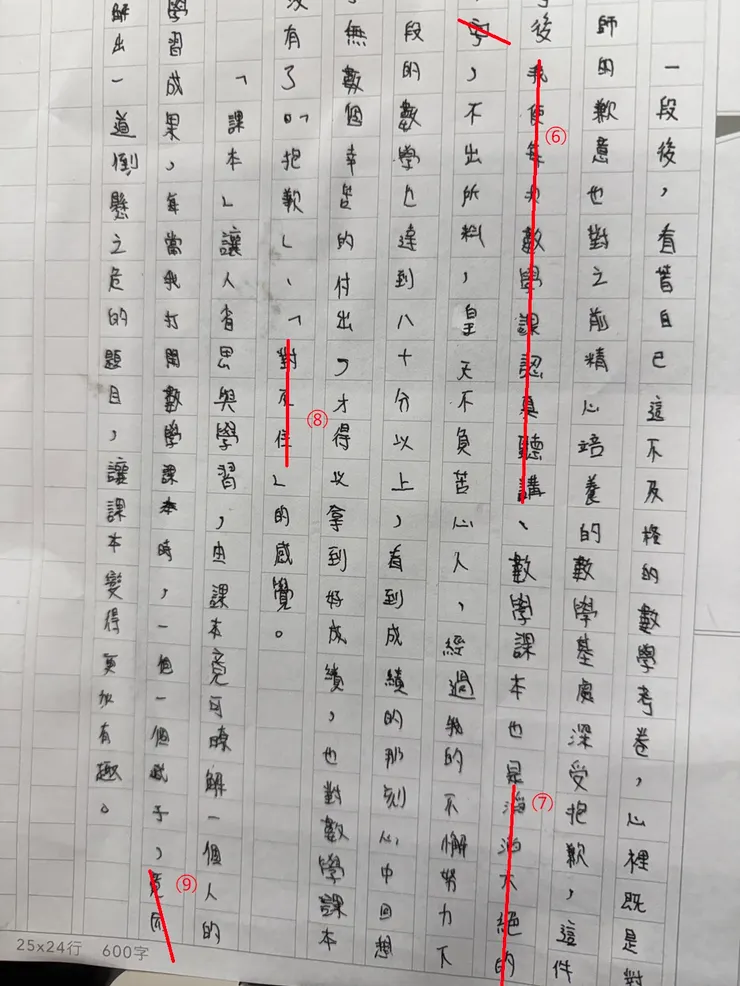 一段後，看著自己這不及格的數學考卷，心裡既是對
師的歉意也對之前精心培養的數學基處深受抱歉，這件
後我便每次數學課認真聽講、數學課本也是滔滔不絕的
字，不出所料，皇天不負苦心人，經過我的不懈努力下
段的數學上達到八十分以上，看到成績的那刻心中回想
無數個幸苦的付出，才得以拿到好成績，也對數學課本
有了「抱歉」、「對不住」的感覺。
「課本」讓人省思與學習，由課本竟可暸解一個人的
學習成果，每當我打開數學課本時，一個一個或予，
解出一道倒懸之危的題目，讓課本變得更加有趣。
⑥
⑦
⑧
⑨
25x24行 600字